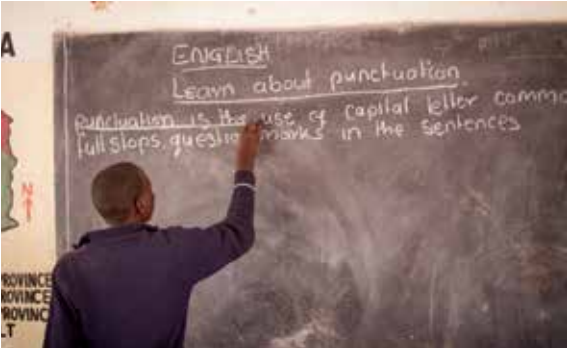 A
ENGLISH
Learn about punctuation.
punctuation is the use of capital letter comma
full stops, question marks in the sentences
N
PROVINCE
PROVINCE
PROVINC
LT